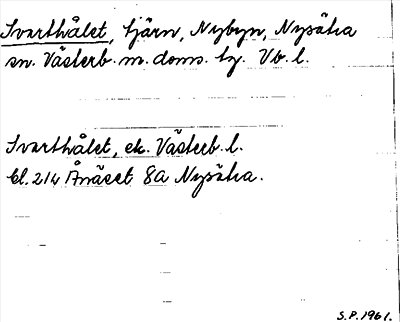 Svarthålet, tjärn, Nybyn, Nysätra
sn. Västerb. m. doms. tg. Vb. l.
Svarthålet, ek. Västerb. l.
bl. 214 Ånäset 8a Nysätra.
S.P. 1961.